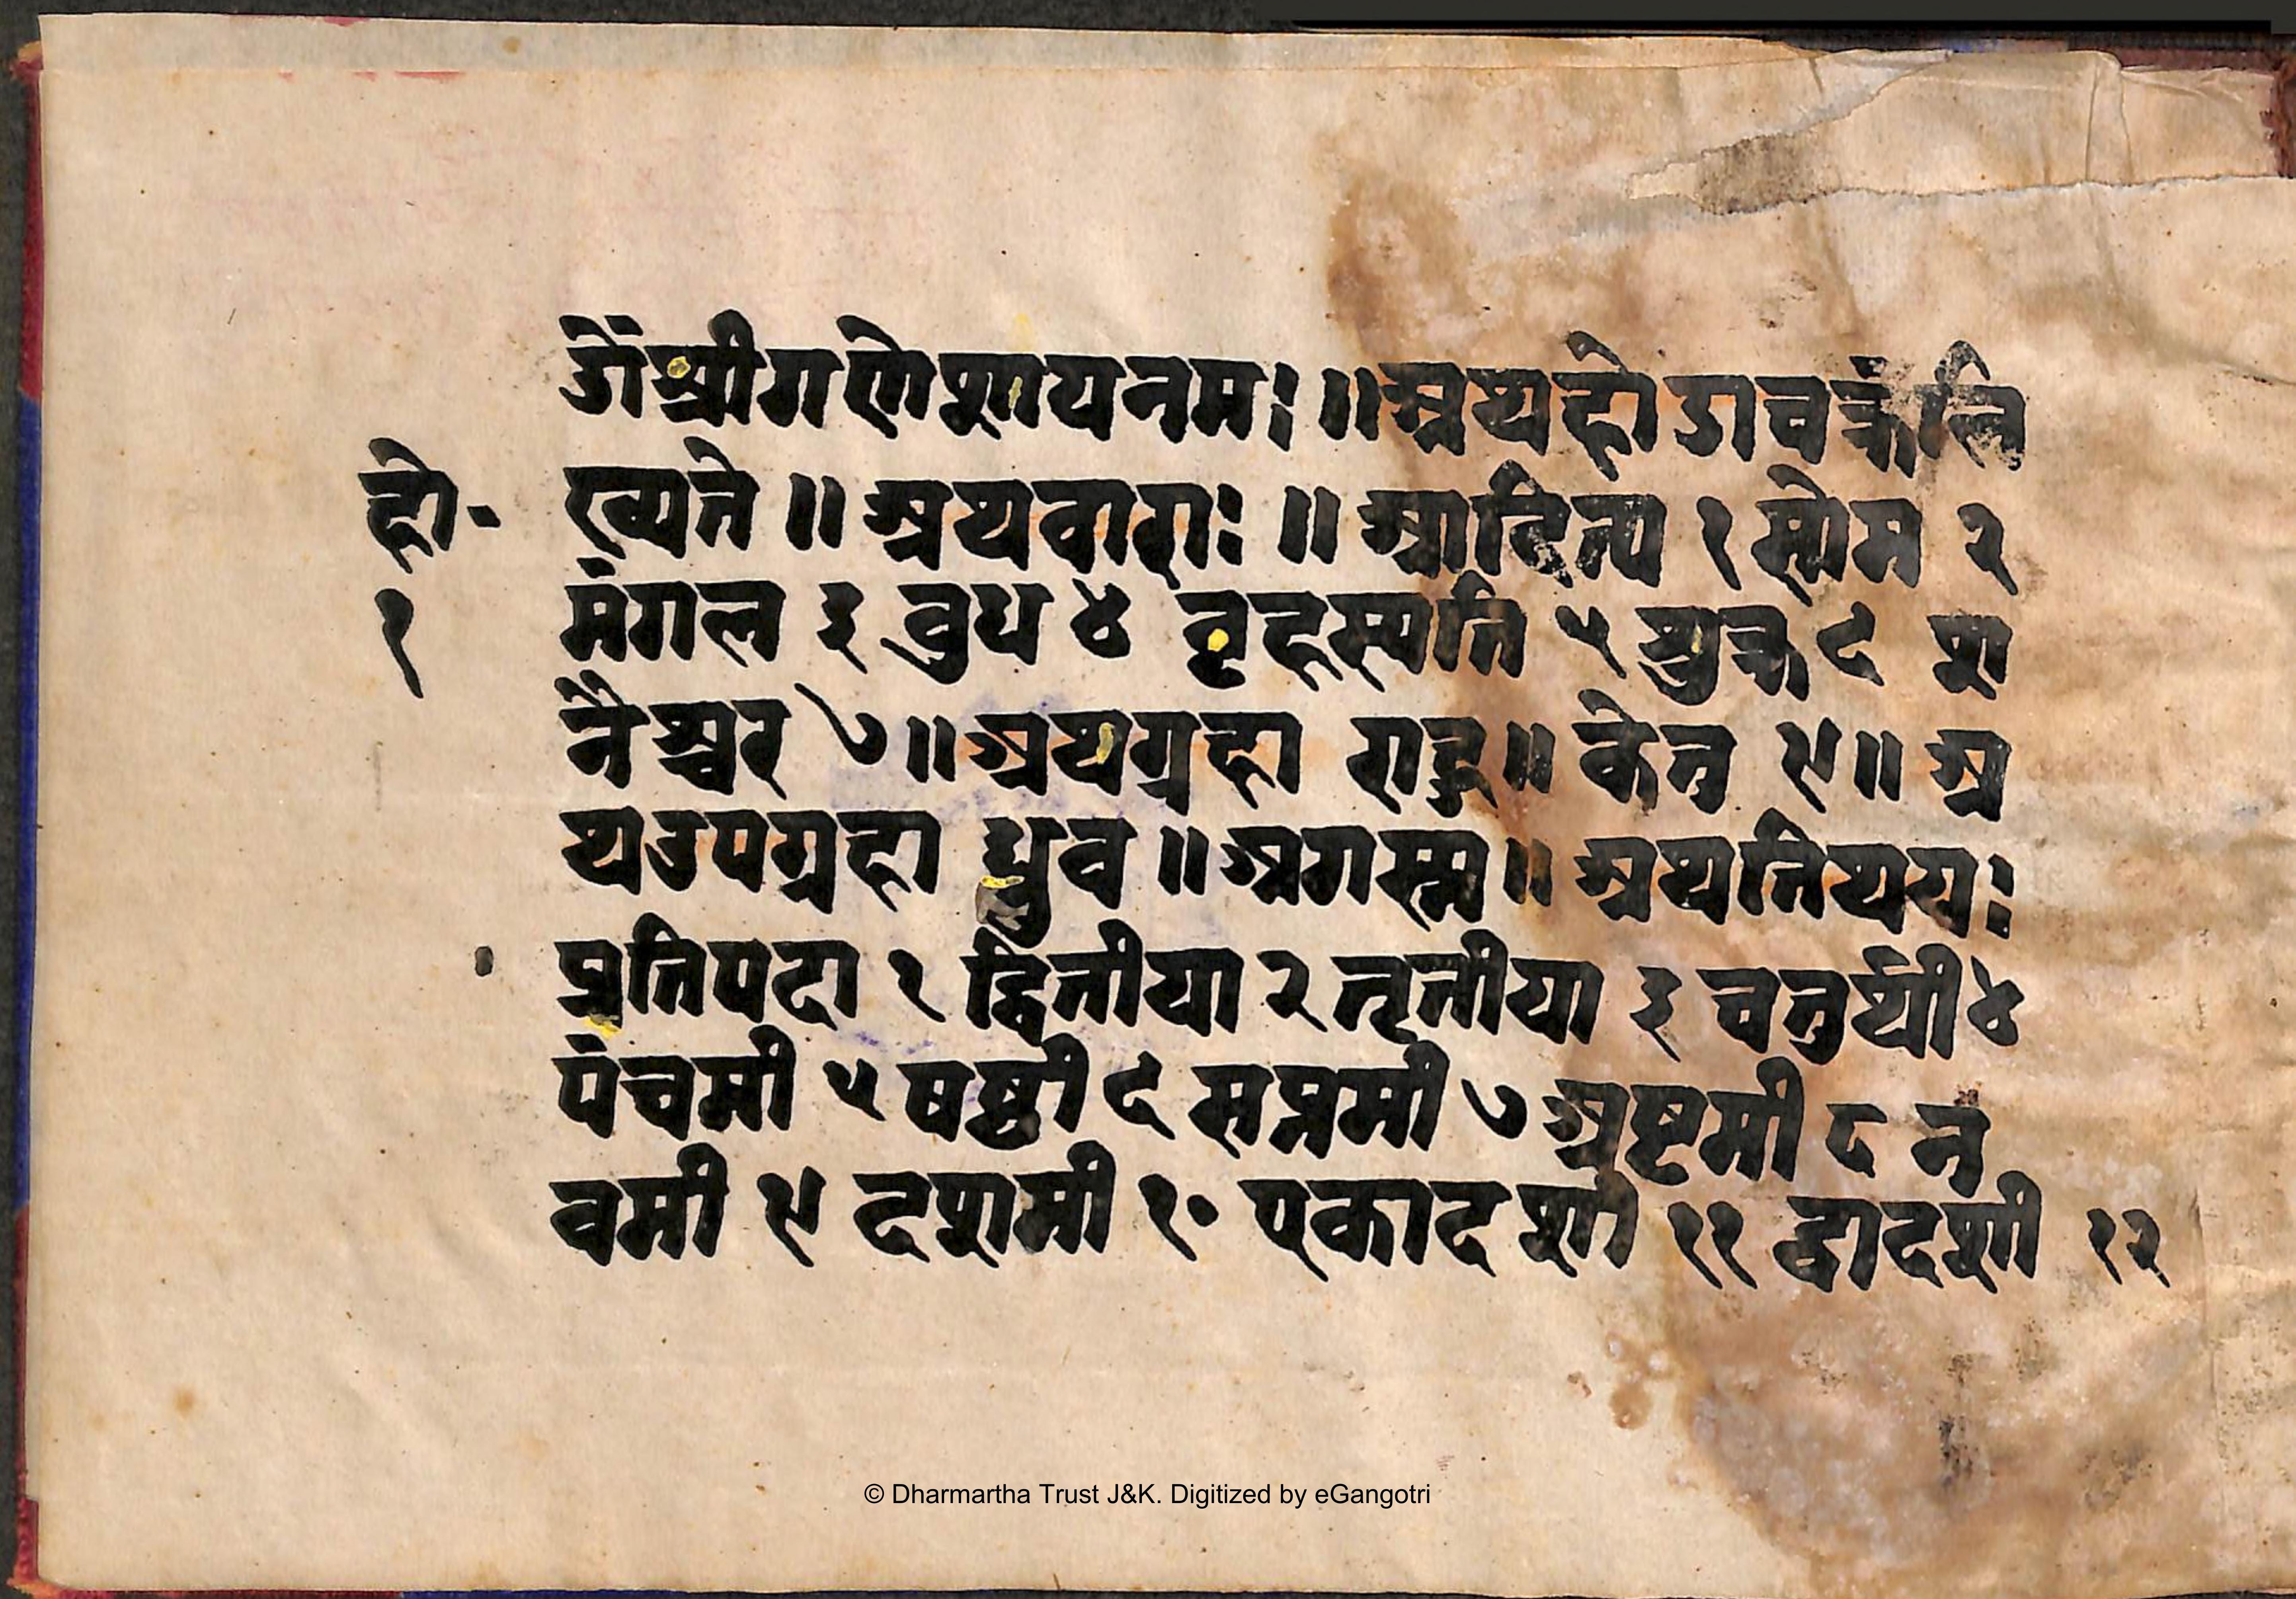 ॐ श्रीगणेशायनमः ॥ अथहोडाचक्रंलि
हो॰ ख्यते ॥ अथवाराः ॥ आदित्य १ सोम २
१ मंगल ३ बुध ४ बृहस्पति ५ शुक्र ६ श
नैश्चर ७ ॥ अथग्रहा राहु ॥ केतु ९ ॥ अ
थउपग्रहा ध्रुव ॥ अगस्त ॥ अथतिथयः
प्रतिपदा १ द्वितीया २ तृतीया ३ चतुर्थी ४
पंचमी ५ षष्ठी ६ सप्तमी ७ अष्टमी ८ न
वमी ९ दशमी १० एकादशी ११ द्वादशी १२
© Dharmartha Trust J&K. Digitized by eGangotri